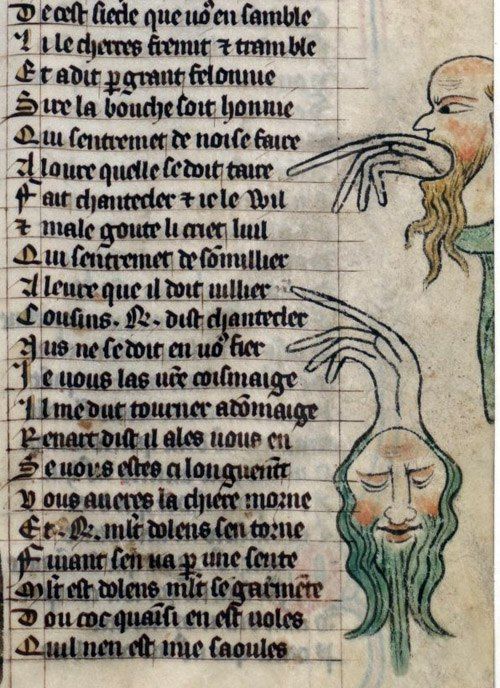 De cest siecle que uo9 en samble
Li lecherres fremist ⁊ tramble
Et a dit p grant felonnie
Sire la bouche soit honnie
Qui sentremet de noise faire
A loure quelle se doit taire
Fait chantecler ⁊ ie le vuil
⁊ male goute li criet luil
Qui sentremet de somillier
A leure que il doit uillier
Cousins .R. dist chantecler
Nus ne se doit en uo9 fier
De uous las ure coismaige
Il me dut tourner a domaige
Renart dist il ales uous en
Se uous estes ci longuemt
Vous aueres la chiere morne
Et .R. mlt dolens sen torne
Fuiant sen ua p une sente
Mlt est dolens mlt se garmente
Dou coc quainsi en est uoles
Quil nen est mie saoules